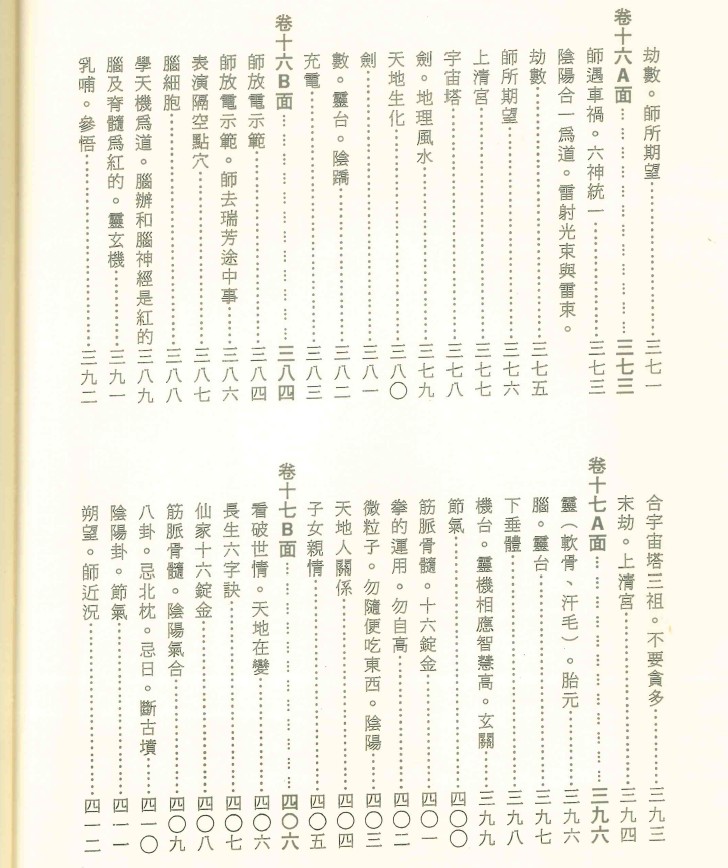 劫數。師所期望……三七一
卷十六A面……三七三
師遇車禍。六神統一……三七三
陰陽合一爲道。雷射光束與雷束。
劫數……三七五
師所期望……三七六
上清宮……三七七
宇宙塔……三七八
劍。地理風水……三七九
天地生化……三八〇
劍……三八一
數。靈台。陰蹻……三八二
充電……三八三
卷十六B面……三八四
師放電示範……三八四
師放電示範。師去瑞芳途中事……三八六
表演隔空點穴……三八七
腦細胞……三八八
學天機爲道。腦辦和腦神經是紅的……三八九
腦及脊髓爲紅的。靈玄機……三九一
乳哺。參悟……三九二
合宇宙塔三祖。不要貪多……三九三
末劫。上清宮……三九四
卷十七A面……三九六
靈（軟骨、汗毛）。胎元……三九六
腦。靈台……三九七
下垂體……三九八
機台。靈機相應智慧高。玄關……三九九
節氣……四〇〇
筋脈骨髓。十六錠金……四〇一
拳的運用。勿自高……四〇二
微粒子。勿隨便吃東西。陰陽……四〇三
天地人關係……四〇四
子女親情……四〇五
卷十七B面……四〇六
看破世情。天地在變……四〇六
長生六字訣……四〇七
仙家十六錠金……四〇八
筋脈骨髓。陰陽氣合……四〇九
八卦。忌北枕。忌日。斷古墳……四一〇
陰陽卦。節氣……四一一
朔望。師近況……四一二